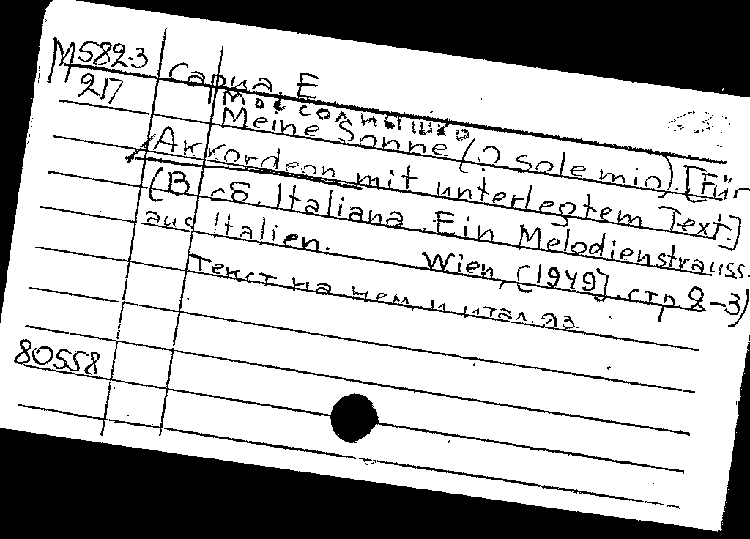 М582-3
217
Capua, E
Моё солнышко
Meine Sonne (O sole mio) [Für
Akkordeon mit unterlegtem Text]
(В сб. Italiana. Ein Melodienstrauss
aus Italien. Wien, [1949]. стр 2-3)
Текст на нем. и итал. яз.
80558